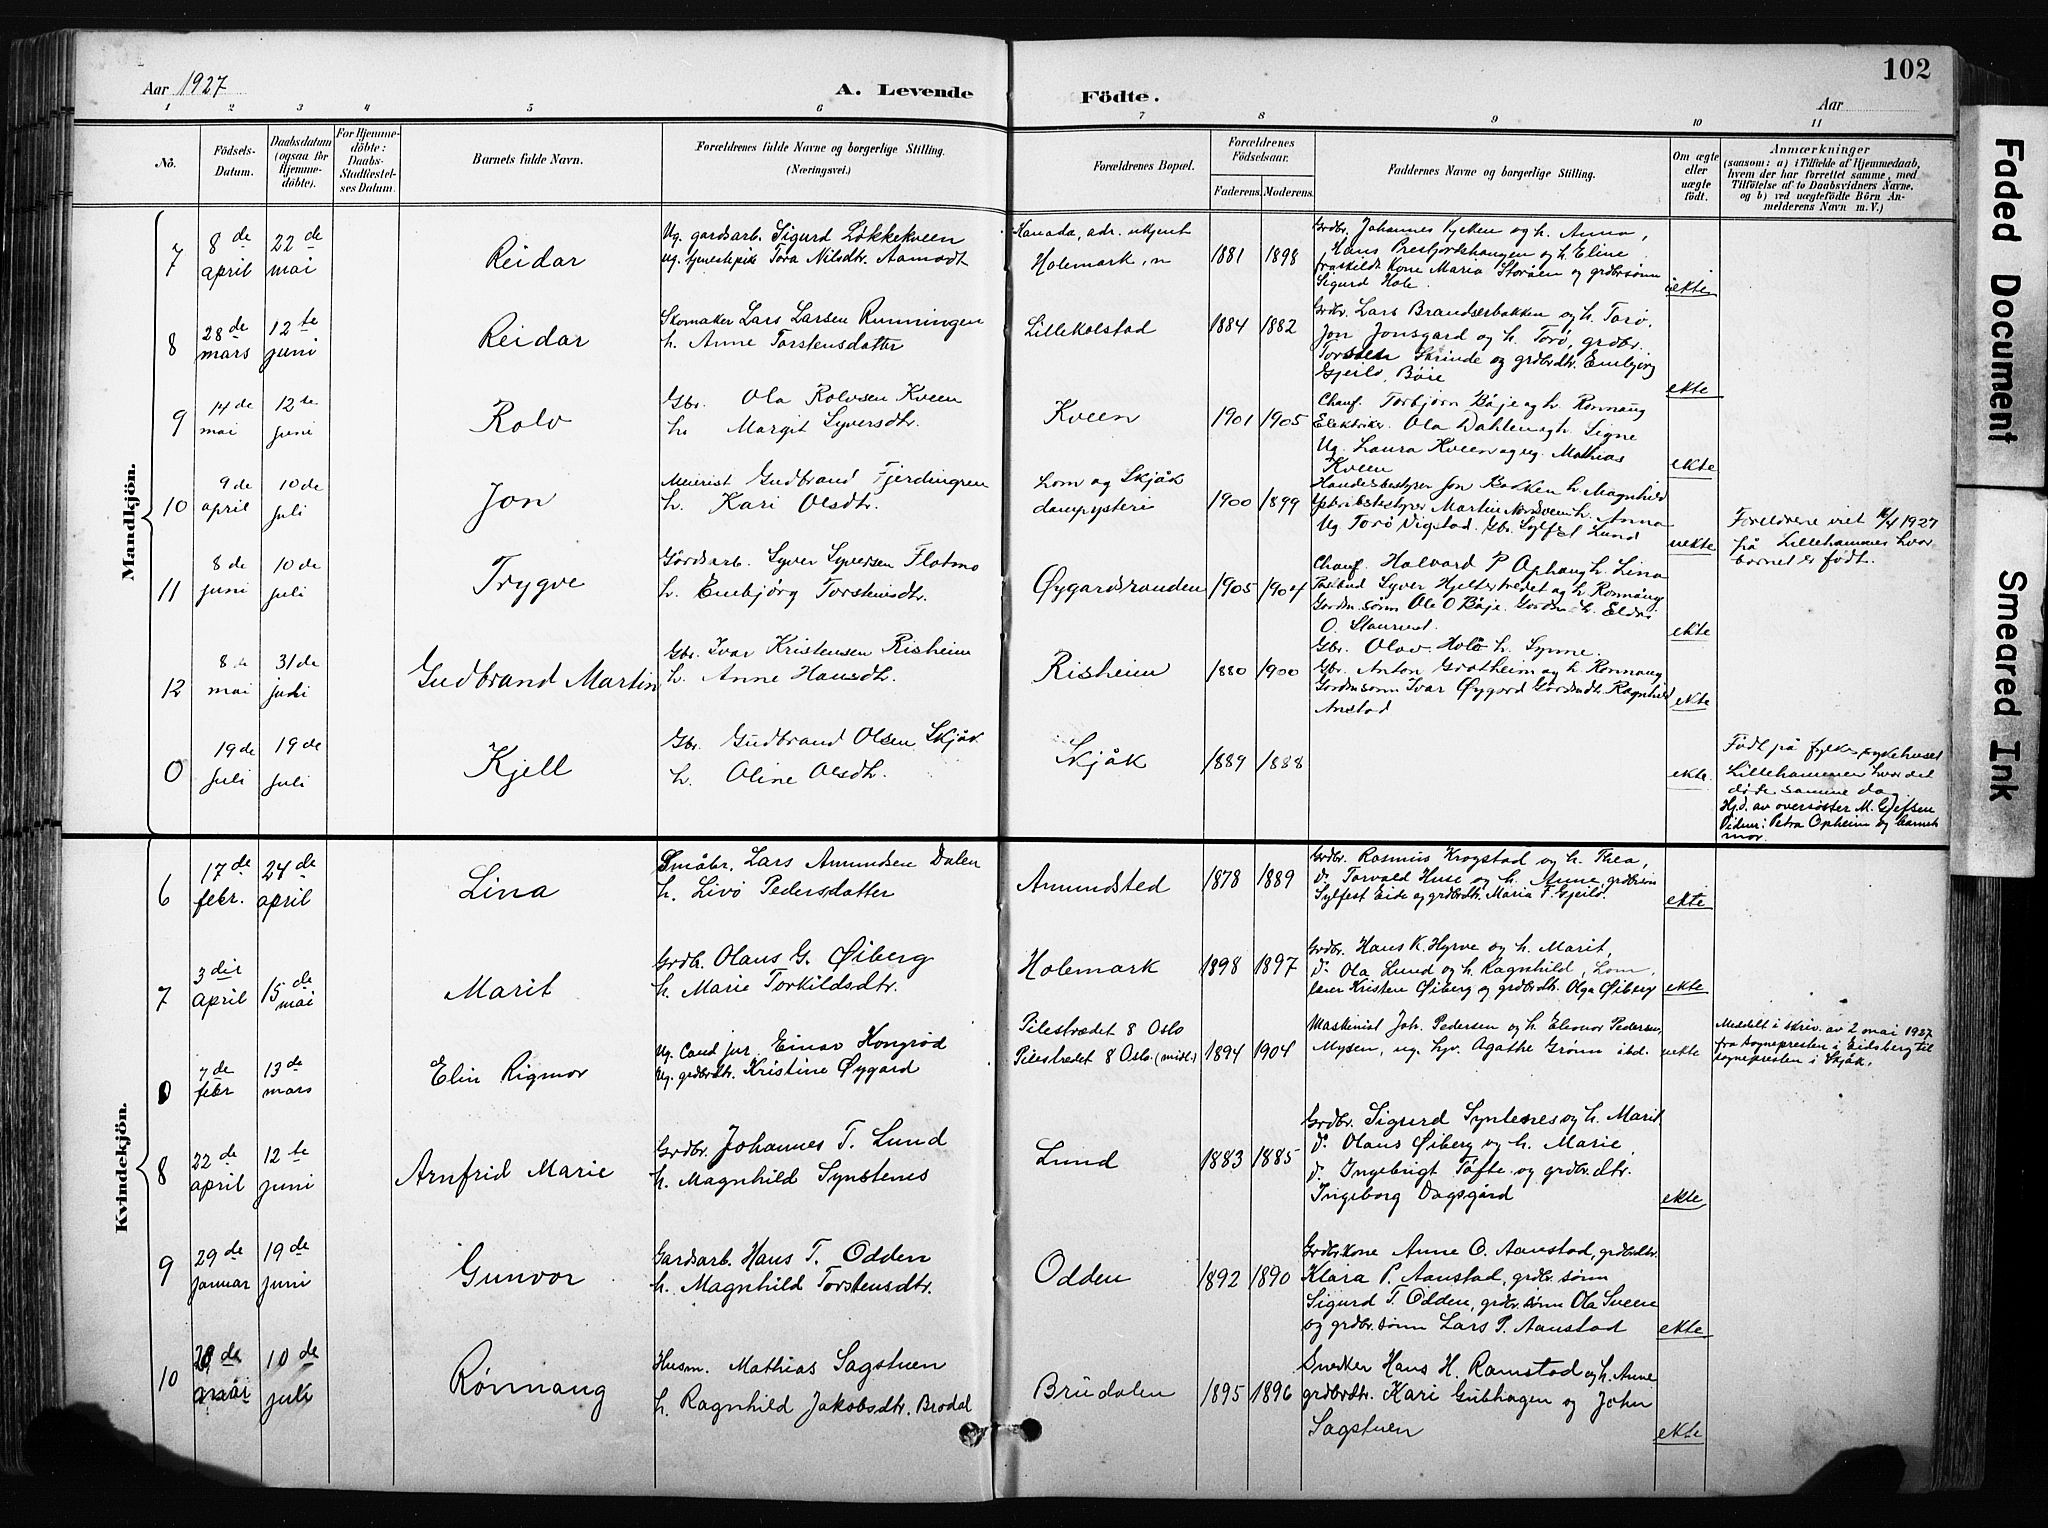 102
Aar 1927
A. Levende Födte.
Aar
1 2 3 4 5 6 7 8 9 10 11
Nô.
Födsels-Datum.
Daabsdatum (ogsaa för Hjemmedöbte).
For Hjemmedöbte: Daabs-Stadfæstelses Datum.
Barnets fulde Navn.
Forældrenes fulde Navne og borgerlige Stilling.
(Næringsvei.)
Forældrenes Bopæl.
Forældrenes Födselsaar.
Faderens. Moderens.
Faddernes Navne og borgerlige Stilling.
Om ægte eller uægte födt.
Anmærkninger
(saasom: a) i Tilfælde af Hjemmedaab,
hvem der har forrettet samme, med
Tilföielse af to Daabsvidners Navne.
og b) ved uægtefödte Börn Anmelderens Navn m. V.)
Mandkjön.
7 8de april 22de mai Reidar
Ug. gardsarb. Sigurd Løkkekveen
ug. tjenestepike Tora Nilsdtr. Aamodt
Kanada, adr. ukjent
Holemark, n
1881 1898
Grdbr. Johannes Kycken og h. Anna,
Hans Presfjordshaugen og h. Eline
fraskildt Kone Maria Storåen og grdbrsønn
Sigurd Hole.
uekte
8 28de mars 12te juni Reidar
Skomaker Lars Larsen Runningen
h. Anne Torstensdatter
Lillekolstad
1884 1882
Grdbr. Lars Brandserbakken og h. Torø.
Jon Jonsgard og h. Torø, grdbr.
Torstein Skrinde og grdbrdtr. Embjørg
Gjeilo, Bøie
ekte
9 14de mai 12te juni Rolv
Gbr. Ola Rolvsen Kveen
h. Margit Syversdtr.
Kveen
1901 1905
Chauf. Torbjørn Bøje og h. Rønnaug
Elektriker Ola Dahlen og h. Signe
Ug. Laura Kveen og ug. Mathias
Kveen
ekte
10 9de april 10de juli Jon
Meierist Gudbrand Fjerdingren
h. Kari Olsdtr.
Lom og Skjåk
dampysteri
1900 1899
Handelsbestyrer Jon Bakken h. Magnhild
Ysteribestyrer Martin Nordveen h. Anna
Ug Torø Vigstad. Gbr. Sylfest Lund
uekte
Foreldrene viet 16/4 1927
på Lillehammer hvor
barnet er født.
11 8de juni 10de juli Trygve
Gårdsarb. Syver Syversen Flotmo
h. Embjørg Torsteinsdtr.
Øygardsranden
1905 1904
Chauf. Halvard P Ophaug h. Lina
Postbud Syver Hjeltestredet og h. Rønnaug
Gårdm.sønn Ole O Bøje. Gårdm. h. Eldri
O. Staurust.
ekte
12 8de mai 31de juli Gudbrand Martin
Gbr. Ivar Kristensen Risheim
h. Anne Hansdtr.
Risheim
1880 1900
Gbr. Olav Holø h. Synne.
Gbr. Anton Grotheim og h. Rønnaug
Gårdmsønn Ivar Øygard Gårdmdtr. Ragnhild
Anstad
ekte
0 19de juli 19de juli Kjell
Gbr. Gudbrand Olsen Skjåk
h. Oline Olsdtr.
Skjåk
1889 1888
ekte.
Født på fylkessykehuset
Lillehammer hvor det
døde samme dag
Hjd. av oversøster M. Gjefsen
Vidner: Petra Opheim og barnets
mor
Kvindekjön.
6 17de febr. 24de april Lina
Småbr. Lars Amundsen Dalen
h. Livø Pedersdatter
Amundsted
1878 1889
Grdbr. Rasmus Krogstad og h. Thea,
do Torvald Huse og h. Anne, grdbrsøn
Sylfest Eide og grdbrdtr. Maria F. Gjeilo.
ekte
7 3die april 15de mai Marit
Grdbr. Olaus G. Øiberg
h. Marie Torkildsdtr.
Holemark
1898 1897
Grdbr. Hans K. Hyrve og h. Marit,
do Ola Lund og h. Ragnhild, Lom,
lærer Kristen Øiberg og grdbrdtr. Olga Øiberg
ekte
0 7de febr 13de mars Elin Rigmor
Ug. Cand jur. Einar Hongrød
Ug. grdbrdtr. Kristine Øygard
Pilestrædet 8 Oslo
Pilestrædet 8 Oslo. (midl.)
1894 1904
Maskinist Joh. Pedersen og h. Eleonor Pedersen,
Mysen, ug. hjv. Agathe Grønn ibd.
uekte
Meddelt i skriv. av 2 mai 1927
fra sognepresten i Eidsberg til
sognepresten i Skjåk.
8 22de april 12te juni Arnfrid Marie
Grdbr. Johannes T. Lund
h. Magnhild Synstenes
Lund
1883 1885
Grdbr. Sigurd Synstenes og h. Marit
do Olaus Øiberg og h. Marie,
do Ingebrigt Tøfte og grdbr.dtr.
Ingeborg Dagsgård
ekte
9 29de januar 19de juni Gunvor
Gardsarb. Hans T. Odden
h. Magnhild Torstensdtr.
Odden
1892 1890
Grdbr.kone Anne O. Aanstad, grdbrdtr.
Klara P. Aanstad, grdbr.sønn
Sigurd T. Odden, grdbr.sønn Ola Sveen
og grdbr.sønn Lars P. Aanstad
ekte
10 10de juli Rønnaug
Husm. Mathias Sagstuen
h. Ragnhild Jakobsdtr. Brodal
Brudalen
1895 1896
Snekker Hans H. Ramstad og h. Anne
grdbrdtr. Kari Gubhagen og John
Sagstuen
ekte
Faded Document
Smeared Ink